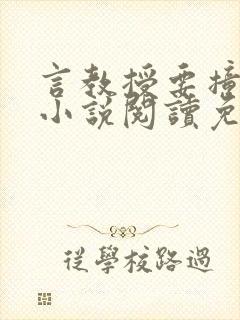 言教授要撞
小説閱讀免
從學校路過